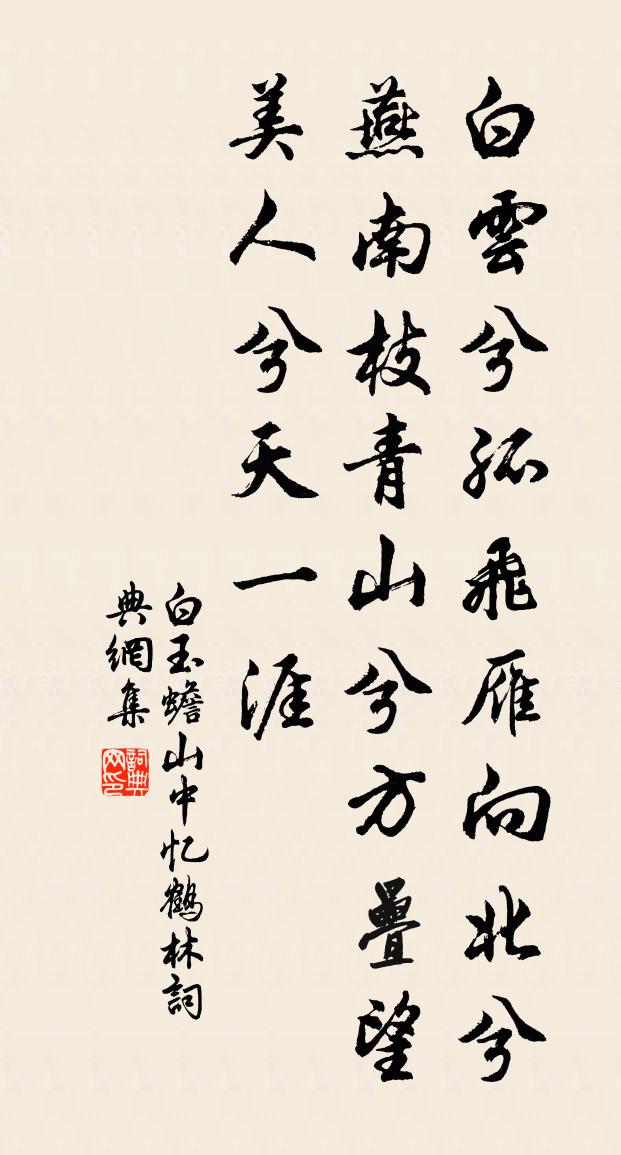 白雲兮孤飛雁向北兮
燕南枝青山兮方疊望
美人兮天一涯
白玉蟾山中忆鶴林詞
典網集
詞典
网印